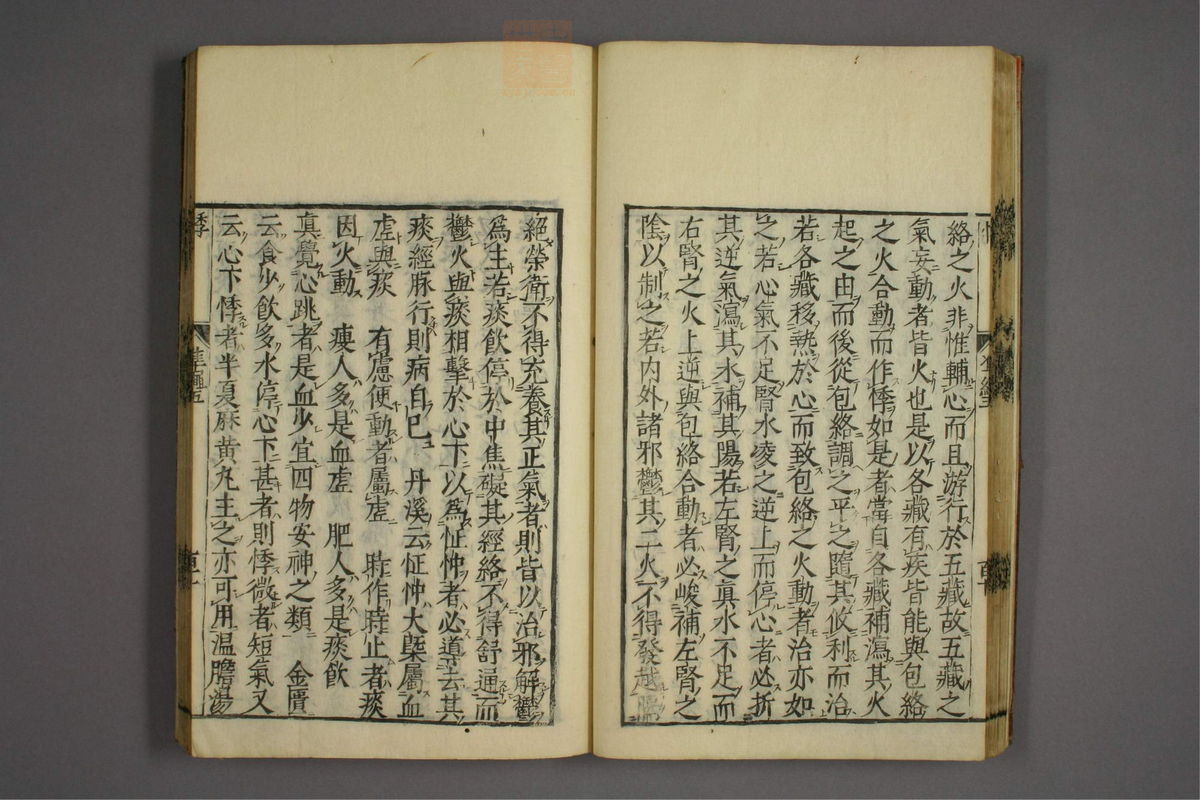 絡之火非惟輔心而且游行於五藏故五藏之
氣妄動者皆火也是以各藏有疾皆能與包絡
之火合動而作悸如是者當自各藏補瀉其火
起之由而後從包絡調之平之隨其攸利而治
若各藏移熱於心而致包絡之火動者治亦如
之若心氣不足腎水凌之逆上而停心者必折
其逆氣瀉其水補其陽若左腎之眞水不足而
右腎之火上逆與包絡合動者必峻補左腎之
陰以制之若內外諸邪鬱其二火不得發越
絕榮衛不得充養其正氣者則皆以治邪解鬱
爲主若痰飲停於中焦礙其經絡不得舒通而
鬱火與痰相擊於心下以爲怔忡者必導去其
痰經脉行則病自已 丹溪云怔忡大槩屬血
虛與痰 有慮便動者屬虛 時作時止者痰
因火動 瘦人多是血虛 肥人多是痰飲
眞覺心跳者是血少宜四物安神之類 金匱
云食少飲多水停心下甚者則悸微者短氣又
云心下悸者半夏麻黃丸主之亦可用溫膽湯
悸